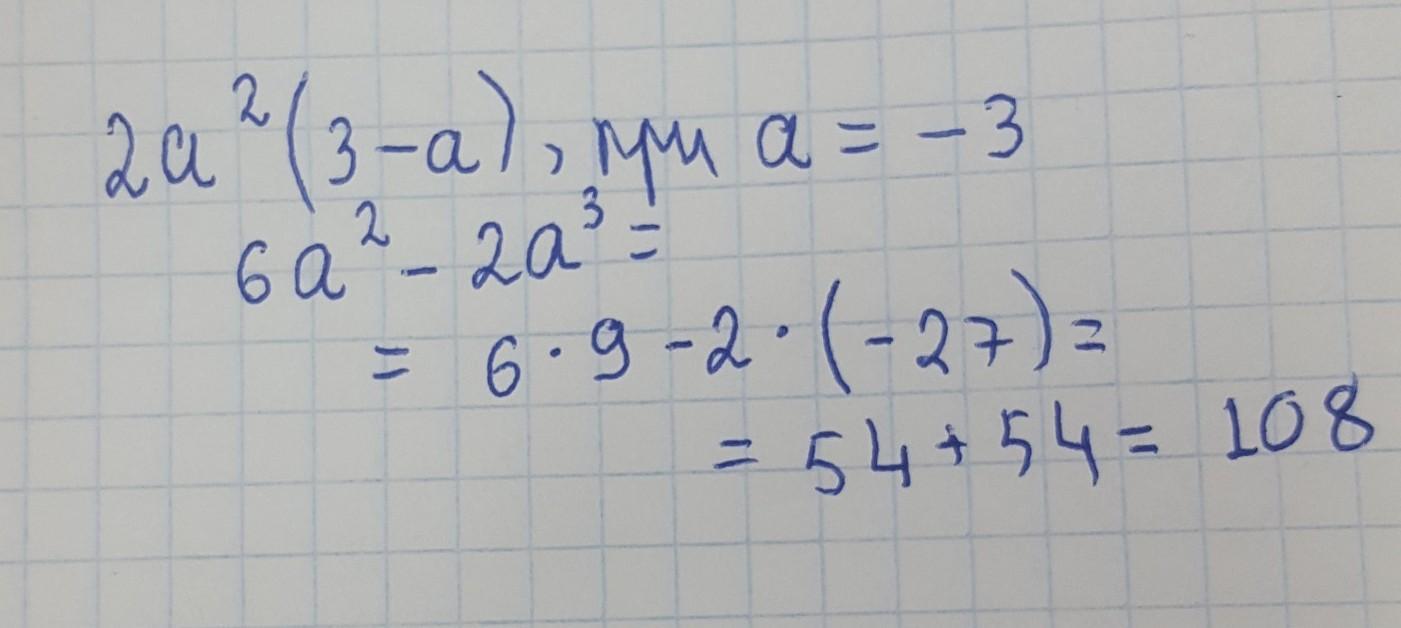 2a²(3-a), при a = -3
6a² - 2a³ =
= 6 · 9 - 2 · (-27) =
= 54 + 54 = 108